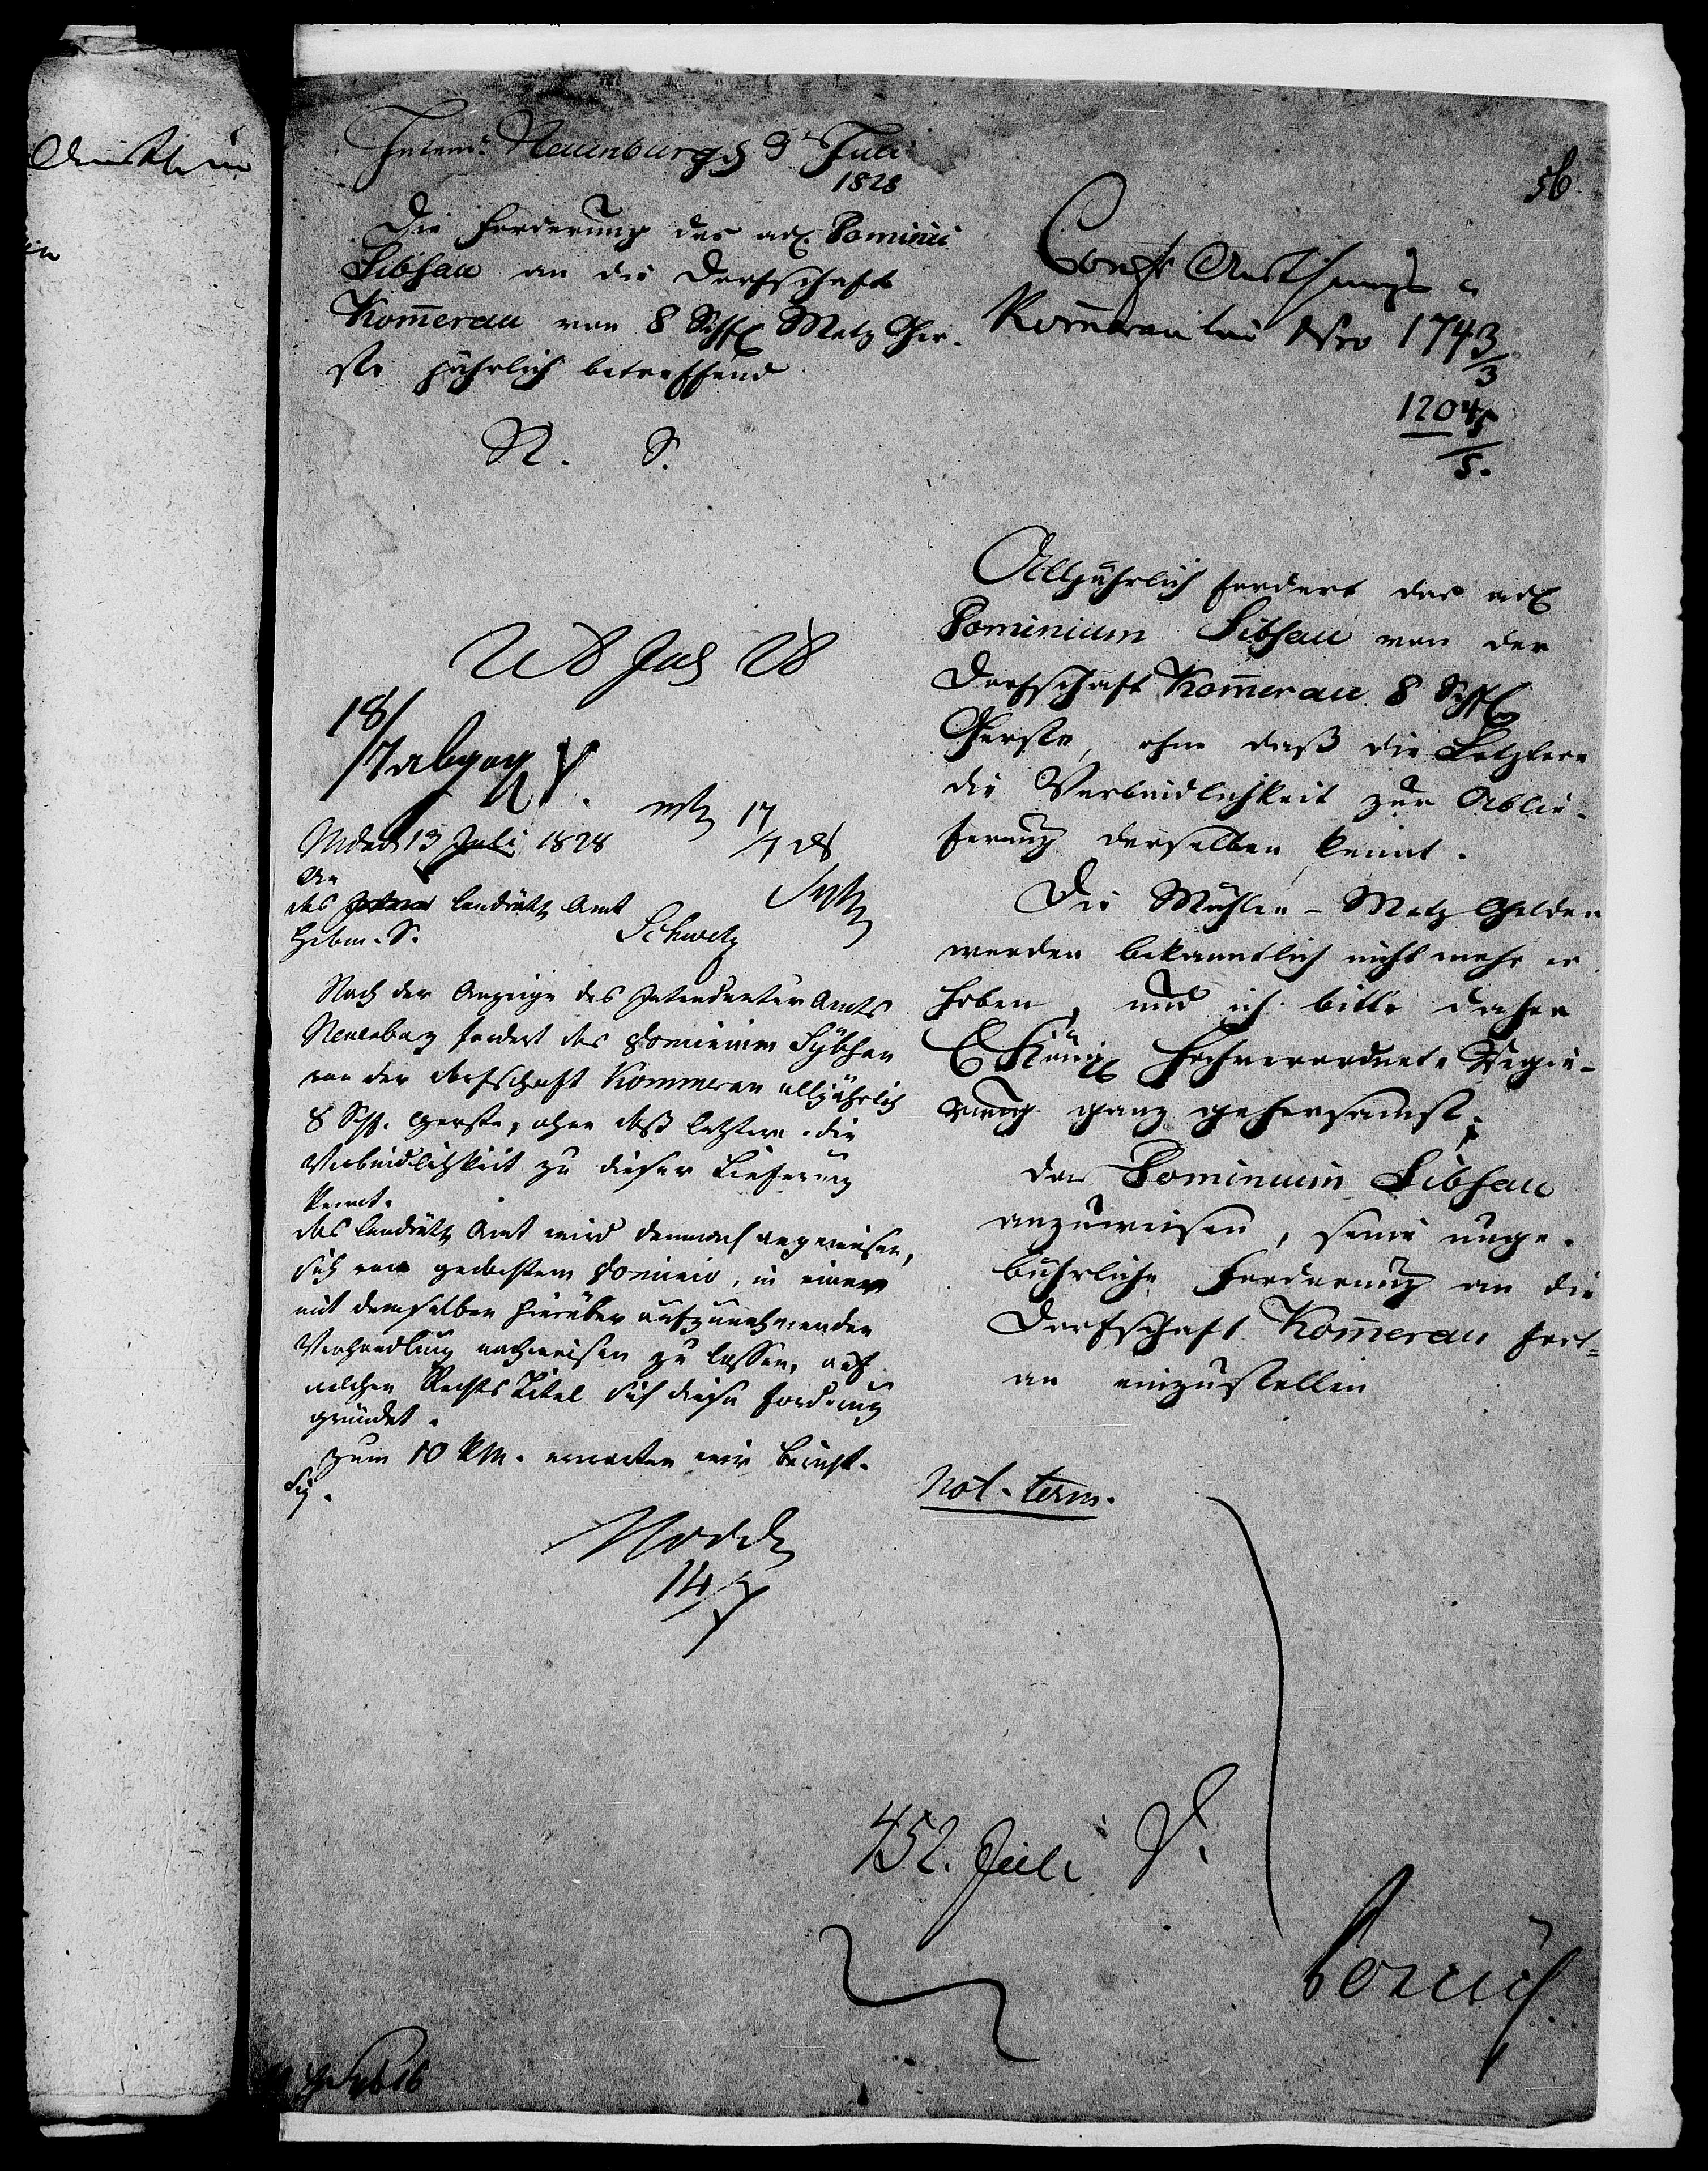 56
Intend: Neuenburg d 3t Juli
1828
Die Forderung des adl. Dominii
Libsau an die Dorfschaft
Kom̄erau von 8 Schfl Metz Ger-
ste jährlich betreffend
N. S.
Kom̄erau 1743
/3
1204
/5.
Alljährlich fordert das adl
Dominium Libsau von der
Dorfschaft Kom̄erau 8 Schfl
Gerste, ohne daß die Letztere
die Verbindlichkeit zur Ablie-
ferung derselben kennt.
Die Mühlen-Metz Gelder
werden bekanntlich nicht mehr er
hoben, und ich bitte daher
E Königl Hochverordnete Regie-
rung ganz gehorsamst:
das Dominium Libsau
anzuweisen, seine unge-
bührliche Forderung an die
Dorfschaft Kom̄erau fort=
an einzustellen
Not. term.
8 Jul 28
18/
/7 abgeg
17
/7 28
M den 13 Juli 1828
An
das landräthl Amt
Schwetz
Nach der Anzeige des Intendantur Amts
Neuenbg fordert das Dominium Lybsau
von der Dorfschaft Kommerau alljährlich
8 Schf. Gerste, ohne daß letztere die
Verbindlichkeit zu dieser Lieferung
kennt.
Das landräthl Amt wird demnach angewiesen,
sich von gedachtem Dominio, in einer
mit demselben hierüber aufzunehmenden
Verhandlung nachweisen zu lassen, auf
welchen Rechts Titel sich diese Forderung
gründet.
Zum 10 k.M. erwarten wir Bericht.
14/7
452. Juli